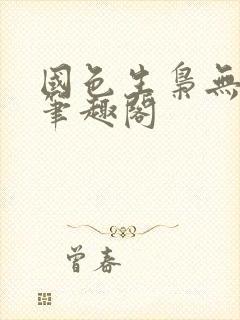 國色生梟無
筆趣閣
曾春